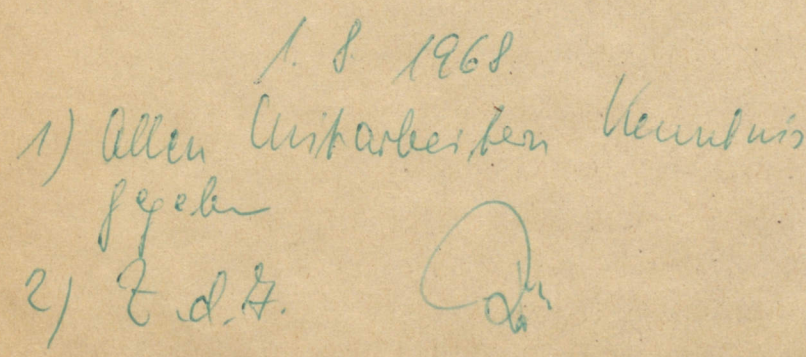 1. 8. 1968
1) Allen Mitarbeitern Kenntnis
gegeben
2) Z.d.A.